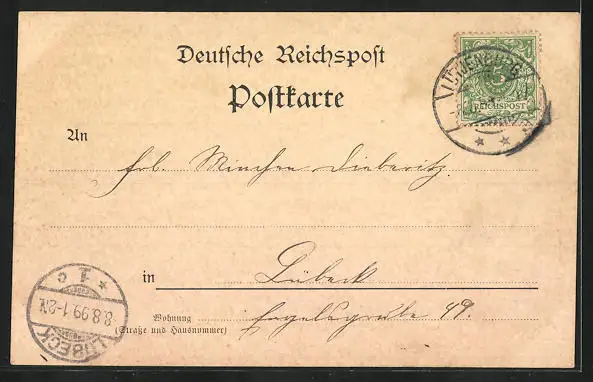 Deutsche Reichspost
Postkarte
LÜTJENBURG
5
REICHSPOST
An
Frl. Minchen Dieberitz
in Lübeck
Wohnung Engelsgrube 49.
(Straße und Hausnummer)
LÜBECK
8.8.99.1-2N.
* 1 c